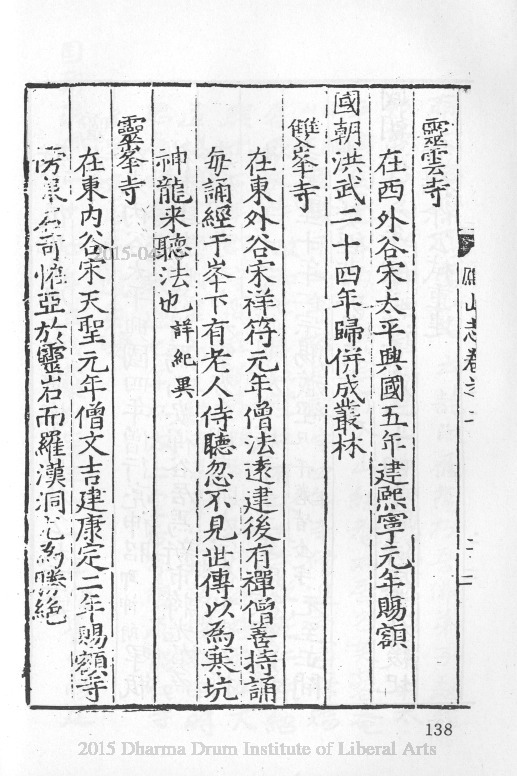 靈雲寺
在西外谷宋太平興國五年建熙寧元年賜額
國朝洪武二十四年歸併成叢林
雙峯寺
在東外谷宋祥符元年僧法遠建後有禪僧善持誦
每誦經于峯下有老人侍聽忽不見世傳以為寒坑
神龍来聽法也 詳紀異
靈峯寺
在東內谷宋天聖元年僧文吉建康定二年賜額寺
奇恠亞於靈岩而羅漢洞尤為勝絶
山志卷之二
138
2015 Dharma Drum Institute of Liberal Arts